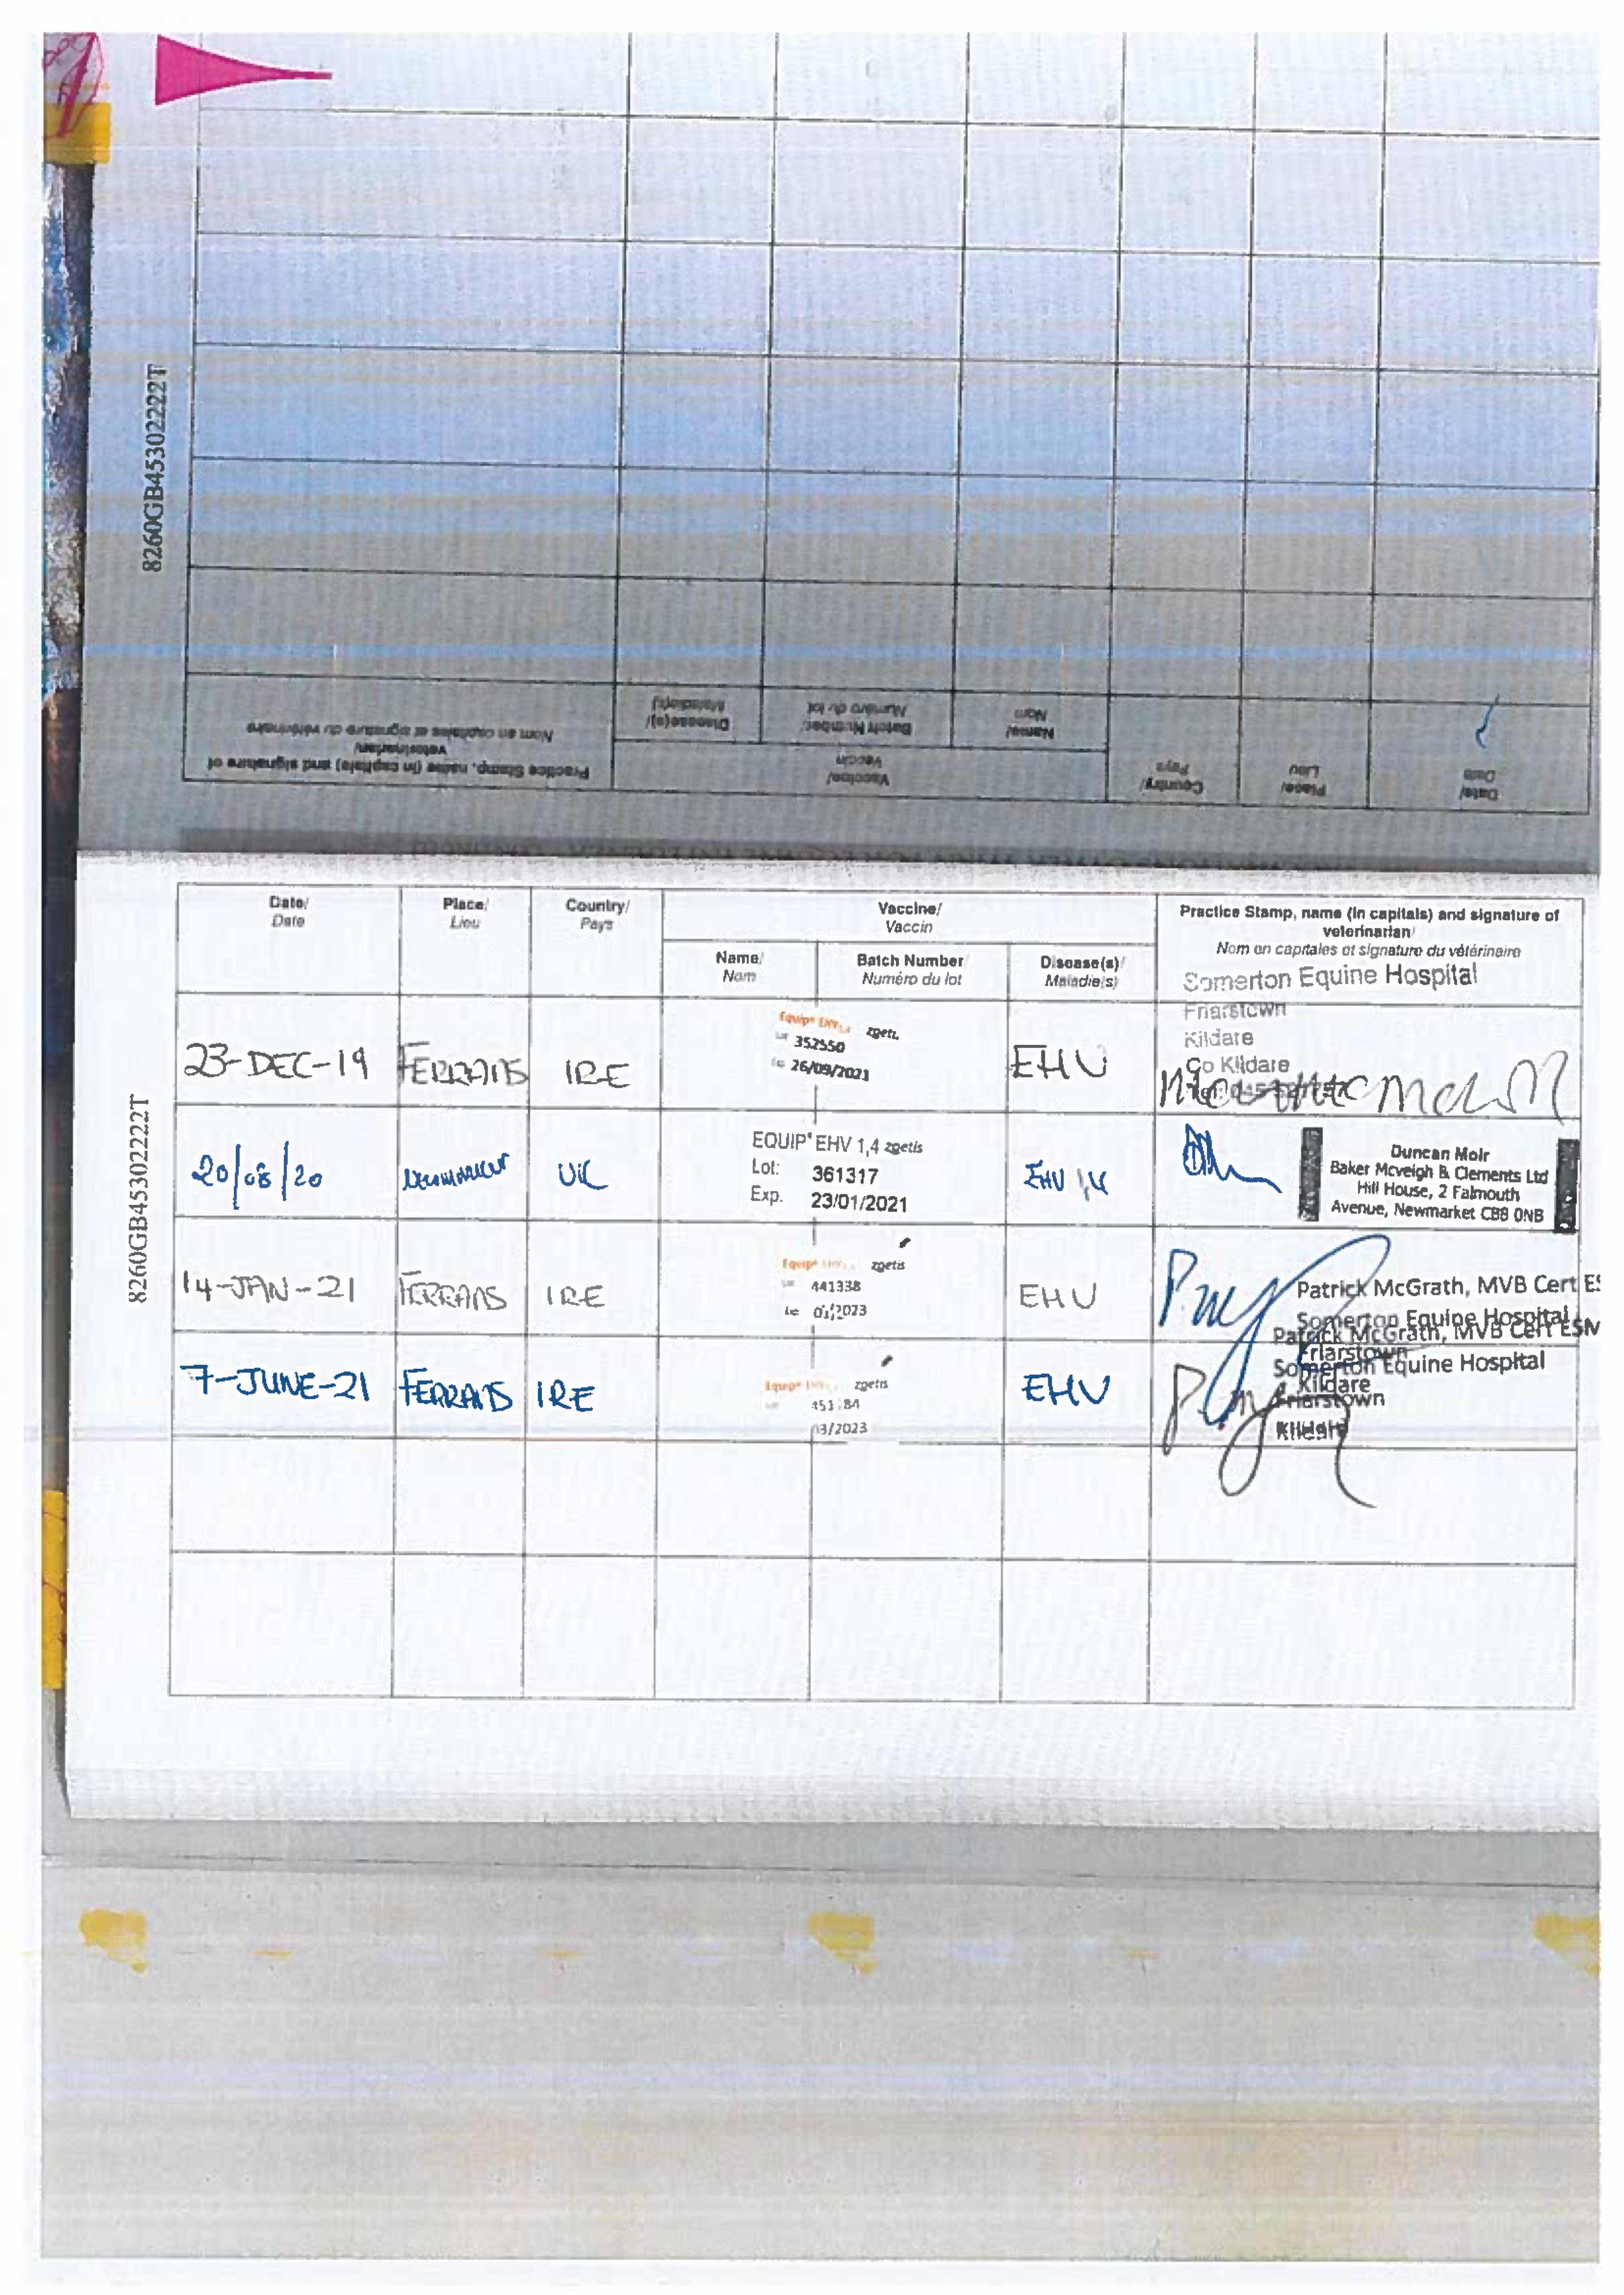 8260GB45302222T
Practice Stamp, name (in capitals) and signature of
veterinarian/
Nom en capitales et signature du vétérinaire
Vaccine/
Vaccin
Disease(s)/
Maladie(s)
Batch Number/
Numéro du lot
Name/
Nom
Country/
Pays
Place/
Lieu
Date/
Date
8260GB45302222T
Date/
Date
Place/
Lieu
Country/
Pays
Vaccine/
Vaccin
Name/
Nom
Batch Number
Numéro du lot
Disease(s)/
Maladie(s)
Practice Stamp, name (in capitals) and signature of
veterinarian/
Nom en capitales et signature du vétérinaire
Somerton Equine Hospital
Friarstown
Kildare
Co Kildare
23-DEC-19 FERRANS IRE
Equip® EHV1,4 zoetis
352550
26/09/2021
EHU
20/08/20
UK
EQUIP® EHV 1,4 zoetis
Lot: 361317
Exp. 23/01/2021
EHV 1,4
Duncan Moir
Baker Mcveigh & Clements Ltd
Hill House, 2 Falmouth
Avenue, Newmarket CB8 0NB
14-JAN-21 FERRANS IRE
Equip® zoetis
441338
01/2023
EHU
Patrick McGrath, MVB Cert ES
Somerton Equine Hospital
Friarstown
Kildare
7-JUNE-21 FERRANS IRE
Equip® zoetis
03/2023
EHU
Patrick McGrath, MVB Cert ESM
Somerton Equine Hospital
Friarstown
Kildare